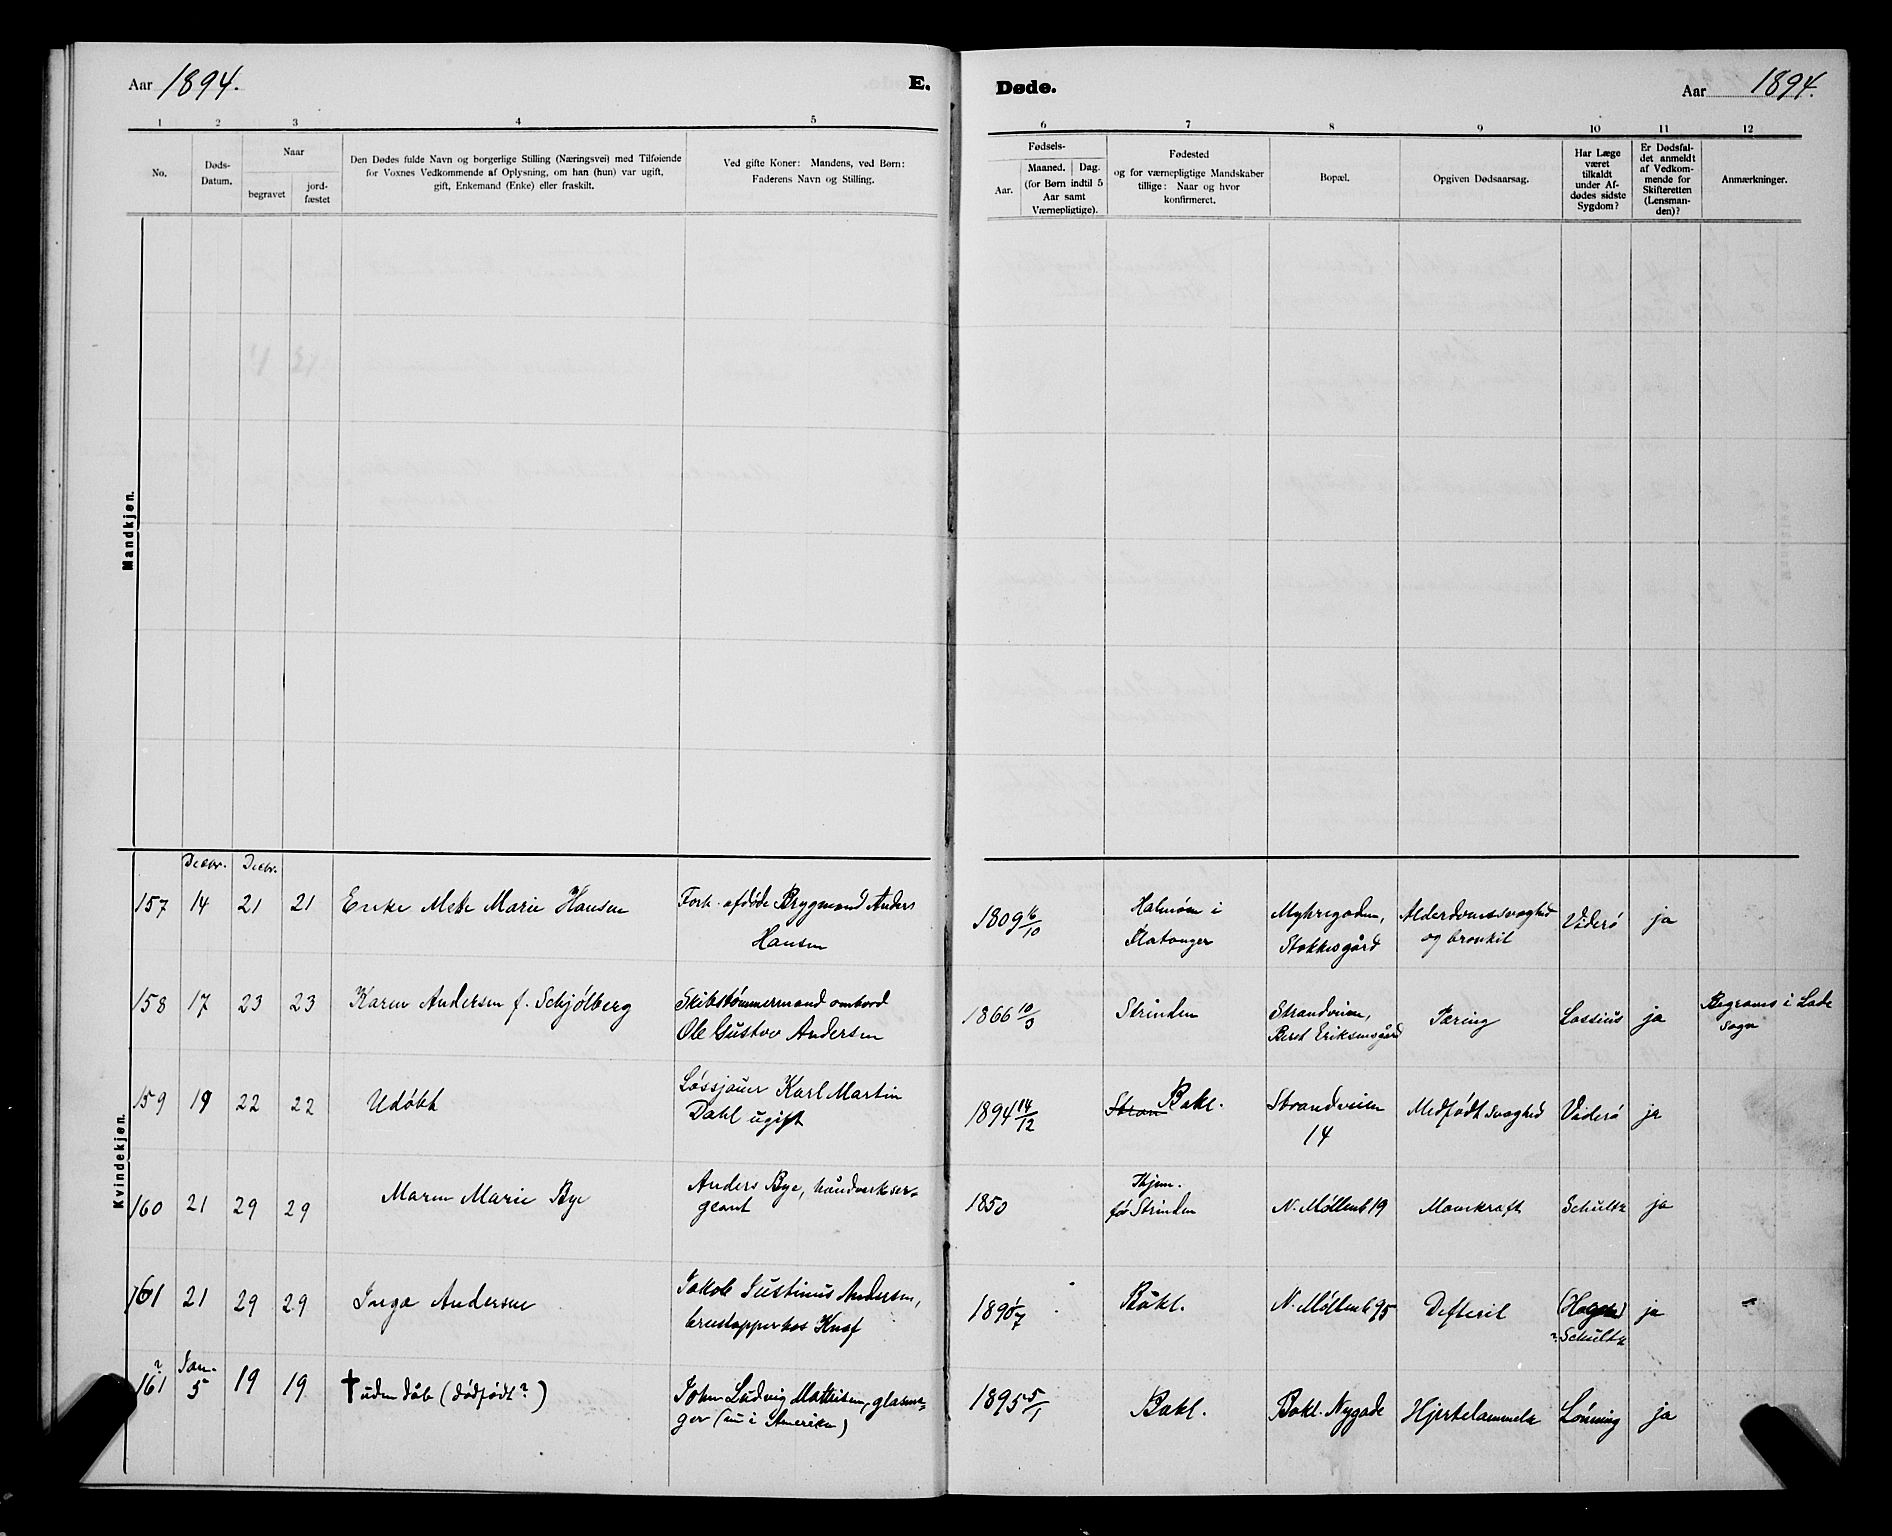 Aar 1894.
E.
Døde.
Aar 1894.
1 2 3 4 5 6 7 8 9 10 11 12
No.
Døds-
Datum.
Naar
begravet
jord-
fæstet
Den Dødes fulde Navn og borgerlige Stilling (Næringsvei) med Tilføiende
for Voxnes Vedkommende af Oplysning, om han (hun) var ugift,
gift, Enkemand (Enke) eller fraskilt.
Ved gifte Koner: Mandens, ved Børn:
Faderens Navn og Stilling.
Fødsels-
Aar.
Maaned. Dag.
(for Børn indtil 5
Aar samt
Værnepligtige).
Fødested
og for værnepligtige Mandskaber
tillige: Naar og hvor
konfirmeret.
Bopæl.
Opgiven Dødsaarsag.
Har Læge
været
tilkaldt
under Af-
dødes sidste
Sygdom?
Er Dødsfal-
det anmeldt
af Vedkom-
mende for
Skifteretten
(Lensman-
den)?
Anmærkninger.
Mandkjøn.
Kvindekjøn.
Decbr. Decbr.
157 14 21 21 Enke Mete Marie Hansen
Forh. afdøde Brygmand Anders
Hansen
1809 16/10
i
Stavanger
Myhregaden,
Stokkesgård
Alderdomssvaghed
og bronkit
Viderö
ja
158 17 23 23 Karen Andersen f. Schjølberg
Skibstømmermand ombord
Ole Gustav Andersen
1866 10/3
Strinden
Strandveien,
Berst Eriksensgård
Tæring
Lossius
ja
Begraves i Lade
Sogn
159 19 22 22 Udøbt
Løssjauer Karl Martin
Dahl ugift
1894 14/12
Stran Bakl.
Strandveien
14
Medfødt svaghed
Viderö
ja
160 21 29 29 Maren Marie Bye
Anders Bye, håndverksser-
geant
1850
Thjem.
før Strinden
N. Møllenb 19
Mavekræft
Schultz
ja
161 21 29 29 Inga Andersen
Jakob Justinus Andersen,
ølaftapper hos Knof
1890 1/7
Bakl.
N. Møllenb 95
Difterit
(Hagen)
? Schultz
ja
? Jan.
161 5 19 19 † uden dåb (dødfødt?)
John Ludvig Mathisen, glasma-
ger (nu i Amerika)
1895 5/1
Bakl.
Bakl. Nygade
Hjertelammelse
Lønning
ja